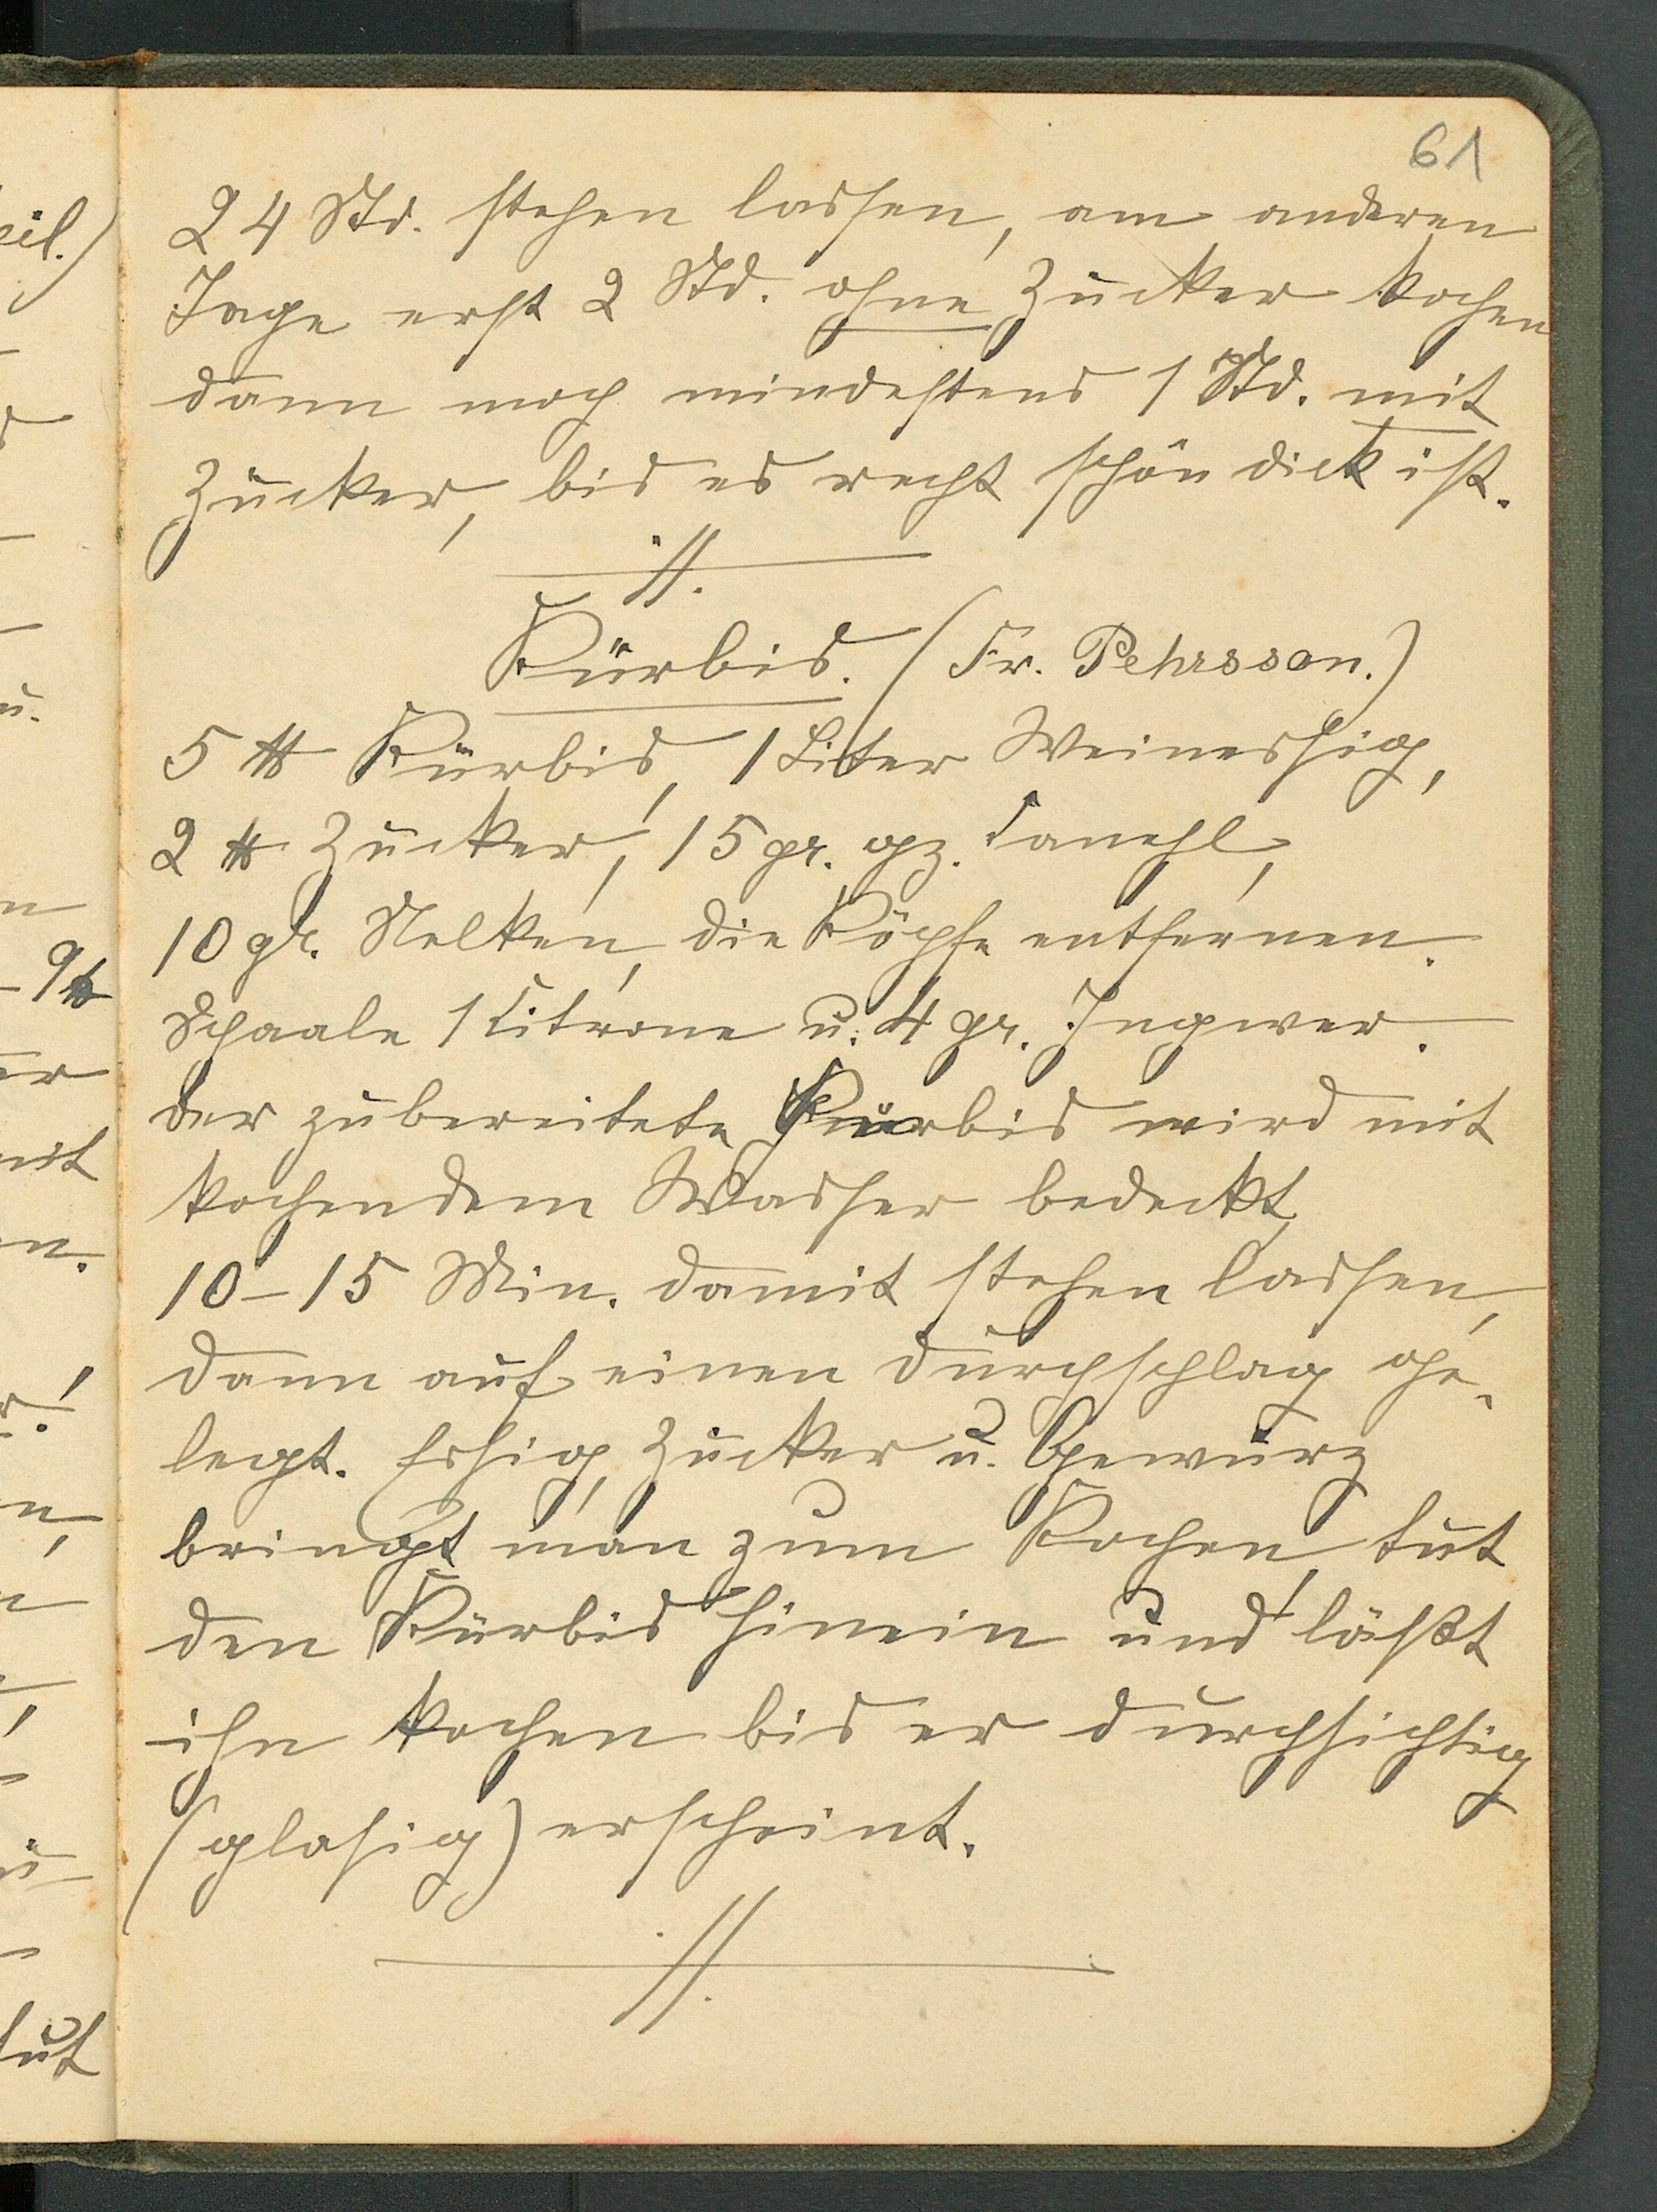 61
24 Std. stehen lassen, am anderen
Tage erst 2 Std. ohne Zucker kochen
dann noch mindestens 1 Std. mit
Zucker, bis es recht schön dick ist.
Kürbis. (Fr. Pehrsson.)
5 ℔ Kürbis, 1 Liter Weinessig,
2 ℔ Zucker, 15 gr. gz. Canehl,
10 gr. Nelken, die Köpfe entfernen.
Schaale 1 Citrone u. 4 gr. Ingwer.
der zubereitete Kürbis wird mit
kochendem Wasser bedeckt,
10-15 Min. damit stehen lassen,
dann auf einen Durchschlag ge-
legt. Essig, Zucker u. Gewürz
bringt man zum Kochen, tut
den Kürbis hinein und läßt
ihn kochen bis er durchsichtig
(glasig) erscheint.